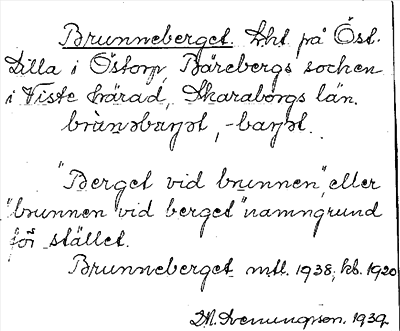 Brunneberget. kht på Öst.
Lilla i Östorp, Bärebergs socken
i Viste härad, Skaraborgs län.
brùnəbaryət, -baryət.
"Berget vid brunnen", eller
"brunnen vid berget" namngrund
för stället.
Brunneberget mtl. 1938, kb. 1920
D.N. Svenungson. 1939